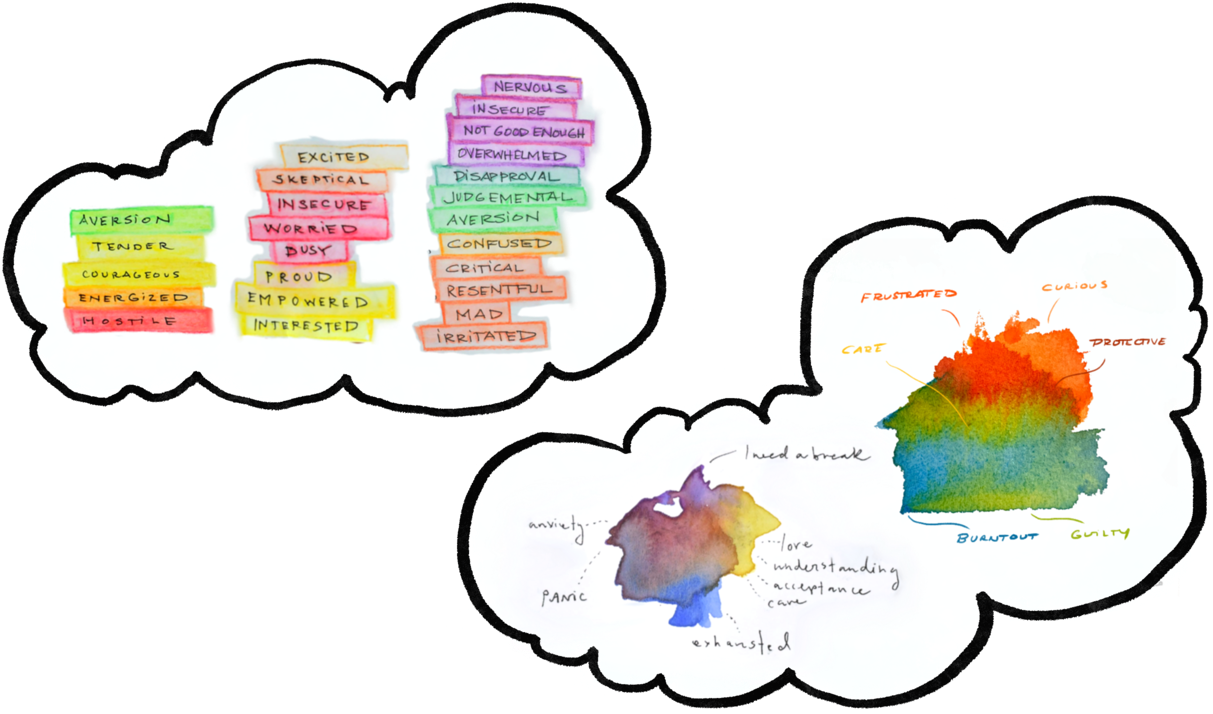 AVERSION
TENDER
COURAGEOUS
ENERGIZED
HOSTILE
EXCITED
SKEPTICAL
INSECURE
WORRIED
BUSY
PROUD
EMPOWERED
INTERESTED
NERVOUS
INSECURE
NOT GOOD ENOUGH
OVERWHELMED
DISAPPROVAL
JUDGEMENTAL
AVERSION
CONFUSED
CRITICAL
RESENTFUL
MAD
IRRITATED
FRUSTRATED
CURIOUS
CARE
PROTECTIVE
BURNTOUT
GUILTY
I need a break
anxiety
PANIC
love
understanding
acceptance
care
exhausted